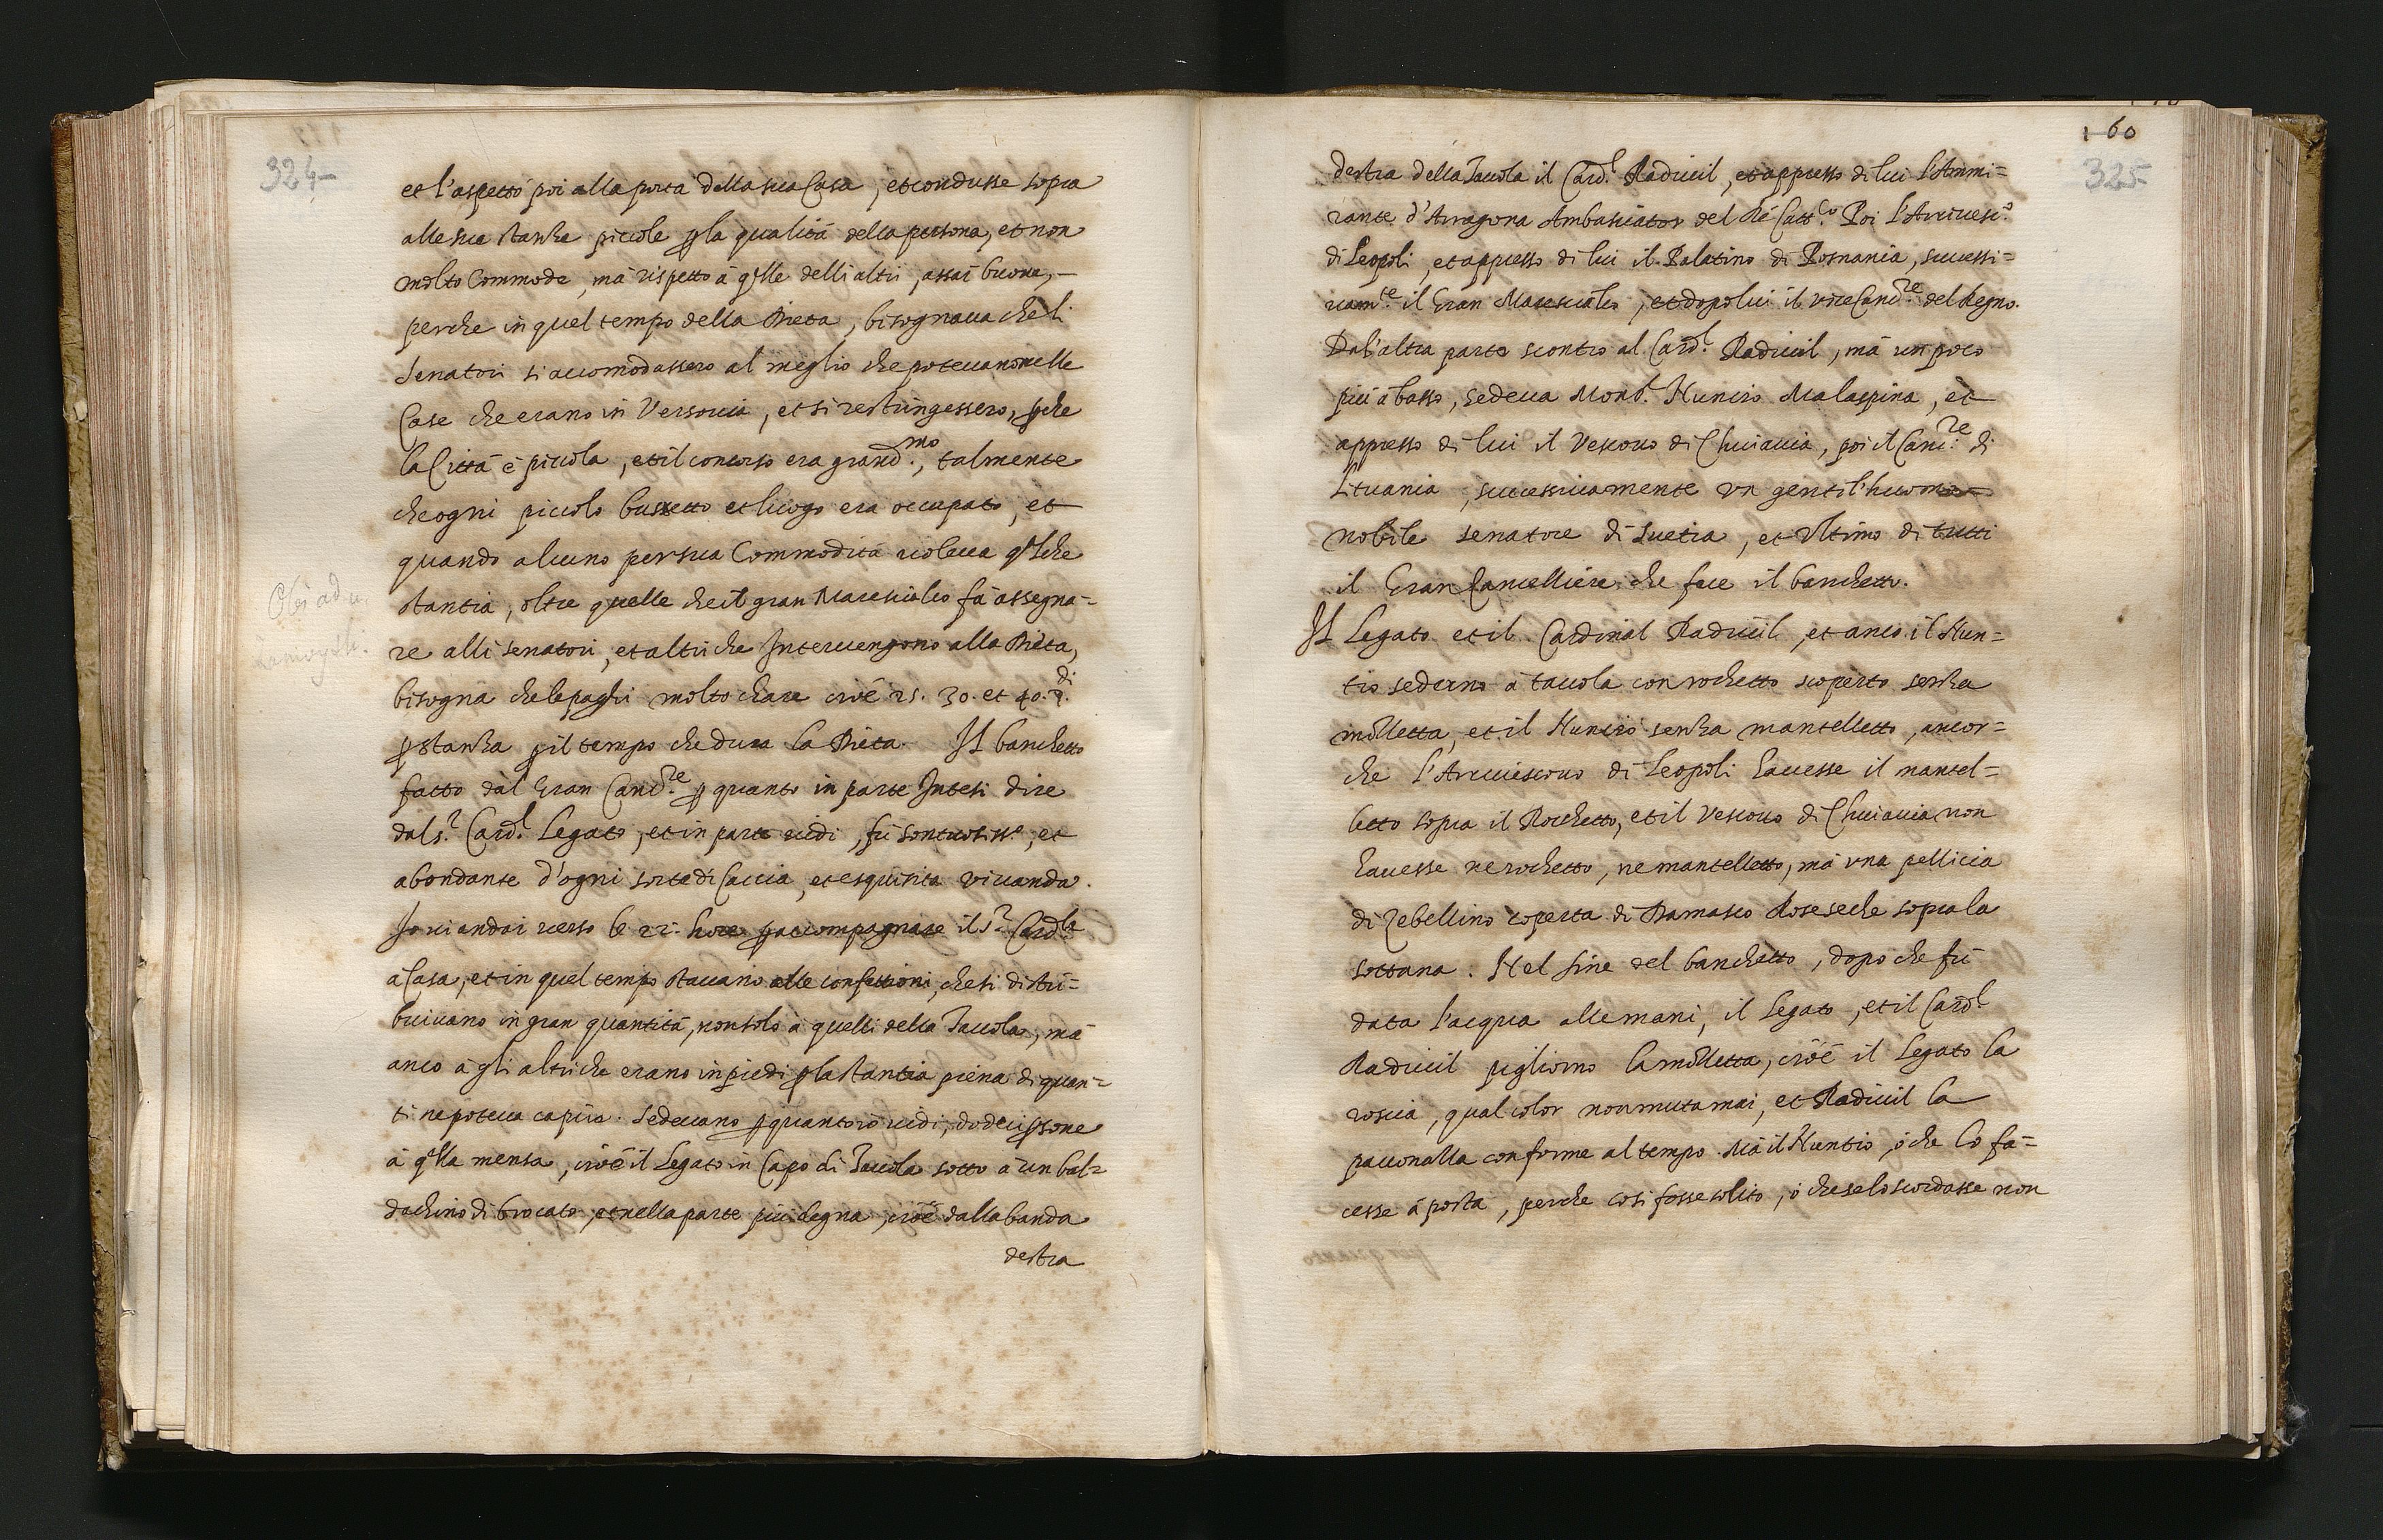 324
et l'aspettò poi alla porta della sua Casa, et condusse sopra
alle sue stanze piccole p la qualità della persona, et non
molto Commode, mà rispetto à qlle delli altri, assai buone,
perche in quel tempo della Dieta, bisognaua che li
Senatori si accomodassero al meglio che poteuano nelle
Case che erano in Versouia, et si restringessero, pche
la Città è piccola, et il concorso era grand.mo, talmente
che ogni piccolo bussetto et luogo era occupato, et
quando alcuno per sua Commodità uoleua qlche
stantia, oltre quelle che il gran Maresciales fà assegna=
re alli senatori, et altri che Interuengono alla Dieta,
bisogna che le paghi molto chare cioè 25. 30. et 40. di
p stanza p il tempo che dura la Dieta. Il banchetto
fatto dal Gran Canc.re p quanto in parte Intesi dire
dal S.r Card.l Legato, et in parte uidi, fù sontuosiss.o, et
abondante d'ogni sorte di Caccia, et esquisita viuanda.
Io ui andai uerso le 22. hore p accompagnare il S.r Card.le
à Casa, et in quel tempo stauano alle confettioni, che si distri=
buiuano in gran quantità, non solo à quelli della Tauola, mà
anco à gli altri che erano in piedi p la stantia piena di quan=
ti ne poteua capire. Sedeuano p quanto io uidi, dodeci psone
à qlla mensa, cioè il Legato in Capo di Tauola sotto à un bal=
dachino di brocato, et nella parte piu degna, cioè dalla banda
destra
Obiad u
Zamoyski.
160
325
destra della Tauola il Card.l Radiuil, et appresso di lui l'Ammi=
rante d'Arragona Ambasciator del Rè Catt.co Poi l'Arciuesc.o
di Leopoli, et appresso di lui il Palatino di Posnania, successi=
uam.te il Gran Maresciales, et dopo lui il vice Canc.re del Regno.
Dal'altra parte scontro al Card.l Radiuil, mà un poco
più à basso, sedeua Mons.r Nuncio Malaspina, et
appresso di lui il Vescouo di Cuiauia, poi il Canc.re di
Lituania, successiuamente vn gentil'huomo
nobile senatore di Suetia, et Vltimo di tutti
il Gran Cancelliere che fece il banchetto.
Il Legato et il Cardinal Radiuil, et anco il Nun=
tio sederno à tauola con rochetto scoperto senza
mozzetta, et il Nuncio senza mantelletto, ancor=
che l'Arciuescouo di Leopoli hauesse il mantel=
letto sopra il Rocchetto, et il Vescouo di Cuiauia non
hauesse ne rochetto, ne mantelletto, mà vna pelliccia
di Zebellino coperta di Damasco Rose seche sopra la
sottana. Nel fine del banchetto, dopo che fù
data l'acqua alle mani, il Legato, et il Card.l
Radiuil pigliorno la mozzetta, cioè il Legato la
roscia, qual color non muta mai, et Radiuil la
pauonalla conforme al tempo. Mà il Nuntio, ò che lo fa=
cesse à posta, perche così fosse solito, ò che se lo scordasse non